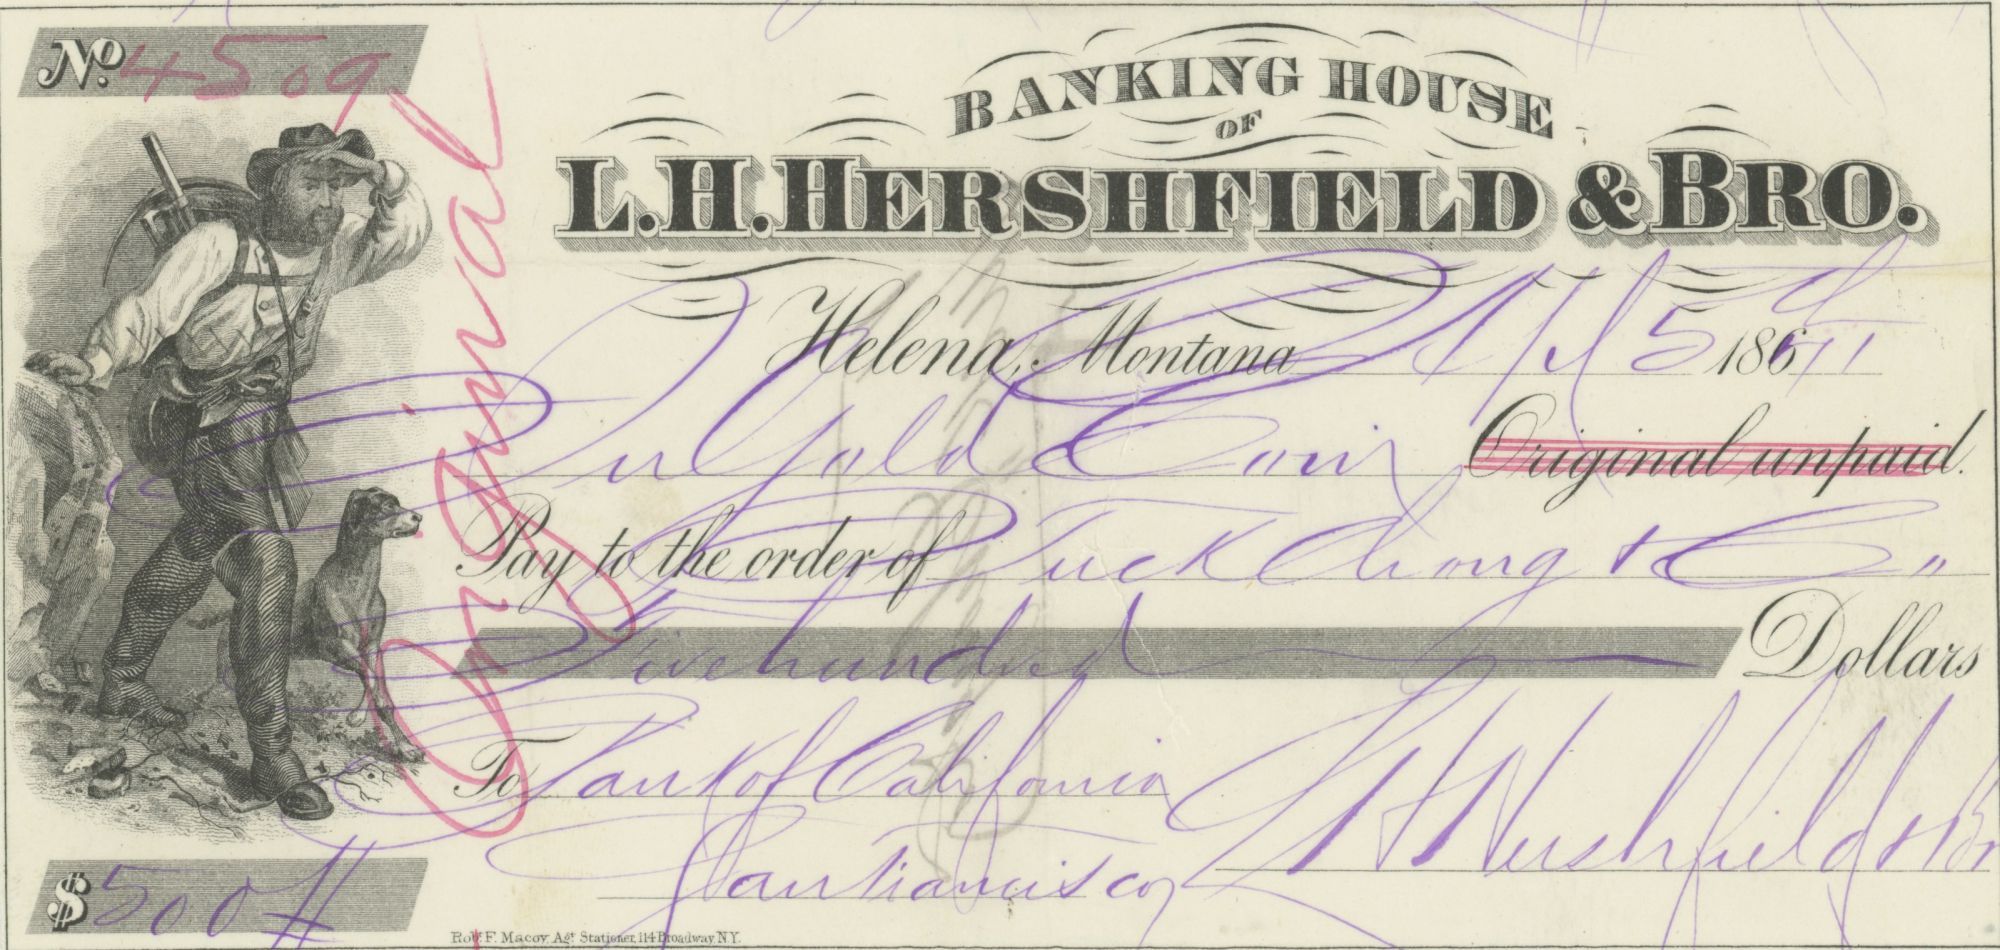 No. 4509
Original
BANKING HOUSE
OF
L. H. HERSHFIELD & BRO.
Helena, Montana Apl 5th 1871
In Gold Coin Original unpaid.
Pay to the order of Tuck Chong & Co
Five hundred Dollars
To Bank of California
San Francisco L H Hershfield & Bro
$ 500
Robt. F. Macoy, Agt. Stationer, 114 Broadway, N.Y.